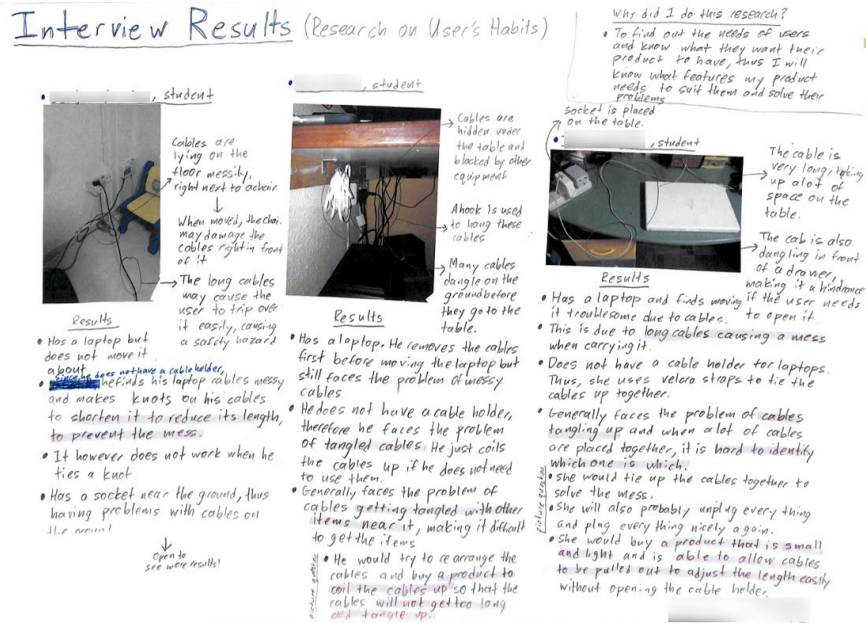 Interview Results (Research on User's Habits)
Why did I do this research?
• To find out the needs of users
and know what they want their
product to have, thus I will
know what features my product
needs to suit them and solve their
problems
, student
Cables are
lying on the
floor messily,
right next to a chair
When moved, the chair
may damage the
cables right in front
of it
The long cables
may cause the
user to trip over
it easily, causing
a safety hazard
Results
• Has a laptop but
does not move it
about
Since he does not have a cable holder,
• he finds his laptop cables messy
and makes knots on his cables
to shorten it to reduce its length,
to prevent the mess.
• It however does not work when he
ties a knot
• Has a socket near the ground, thus
having problems with cables on
the ground
Open to
see more results!
, student
Cables are
hidden under
the table and
blocked by other
equipment
A hook is used
to hang these
cables
Many cables
dangle on the
ground before
they go to the
table.
Results
• Has a laptop. He removes the cables
first before moving the laptop but
still faces the problem of messy
cables
• He does not have a cable holder,
therefore he faces the problem
of tangled cables. He just coils
the cables up if he does not need
to use them.
• Generally faces the problem of
cables getting tangled with other
items near it, making it difficult
to get the items
picture question
• He would try to rearrange the
cables and buy a product to
coil the cables up so that the
cables will not get too long
and tangle up.
socket is placed
on the table.
, student
The cable is
very long, taking
up alot of
space on the
table.
The cab is also
dangling in front
of a drawer,
making it a hindrance
if the user needs
to open it
Results
• Has a laptop and finds moving
it troublesome due to cables.
• This is due to long cables causing a mess
when carrying it.
• Does not have a cable holder for laptops.
Thus, she uses velcro straps to tie the
cables up together.
• Generally faces the problem of cables
tangling up and when a lot of cables
are placed together, it is hard to identify
which one is which.
picture question
• She would tie up the cables together to
solve the mess.
• She will also probably unplug every thing
and plug every thing nicely again.
• She would buy a product that is small
and light and is able to allow cables
to be pulled out to adjust the length easily
without opening the cable holder.